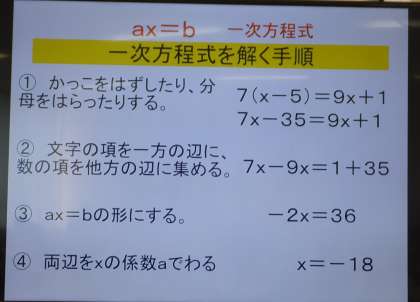 ax＝b　一次方程式
一次方程式を解く手順
① かっこをはずしたり、分
母をはらったりする。
7(x－5)＝9x＋1
7x－35＝9x＋1
② 文字の項を一方の辺に、
数の項を他方の辺に集める。
7x－9x＝1＋35
③ ax＝bの形にする。
－2x＝36
④ 両辺をxの係数aでわる
x＝－18